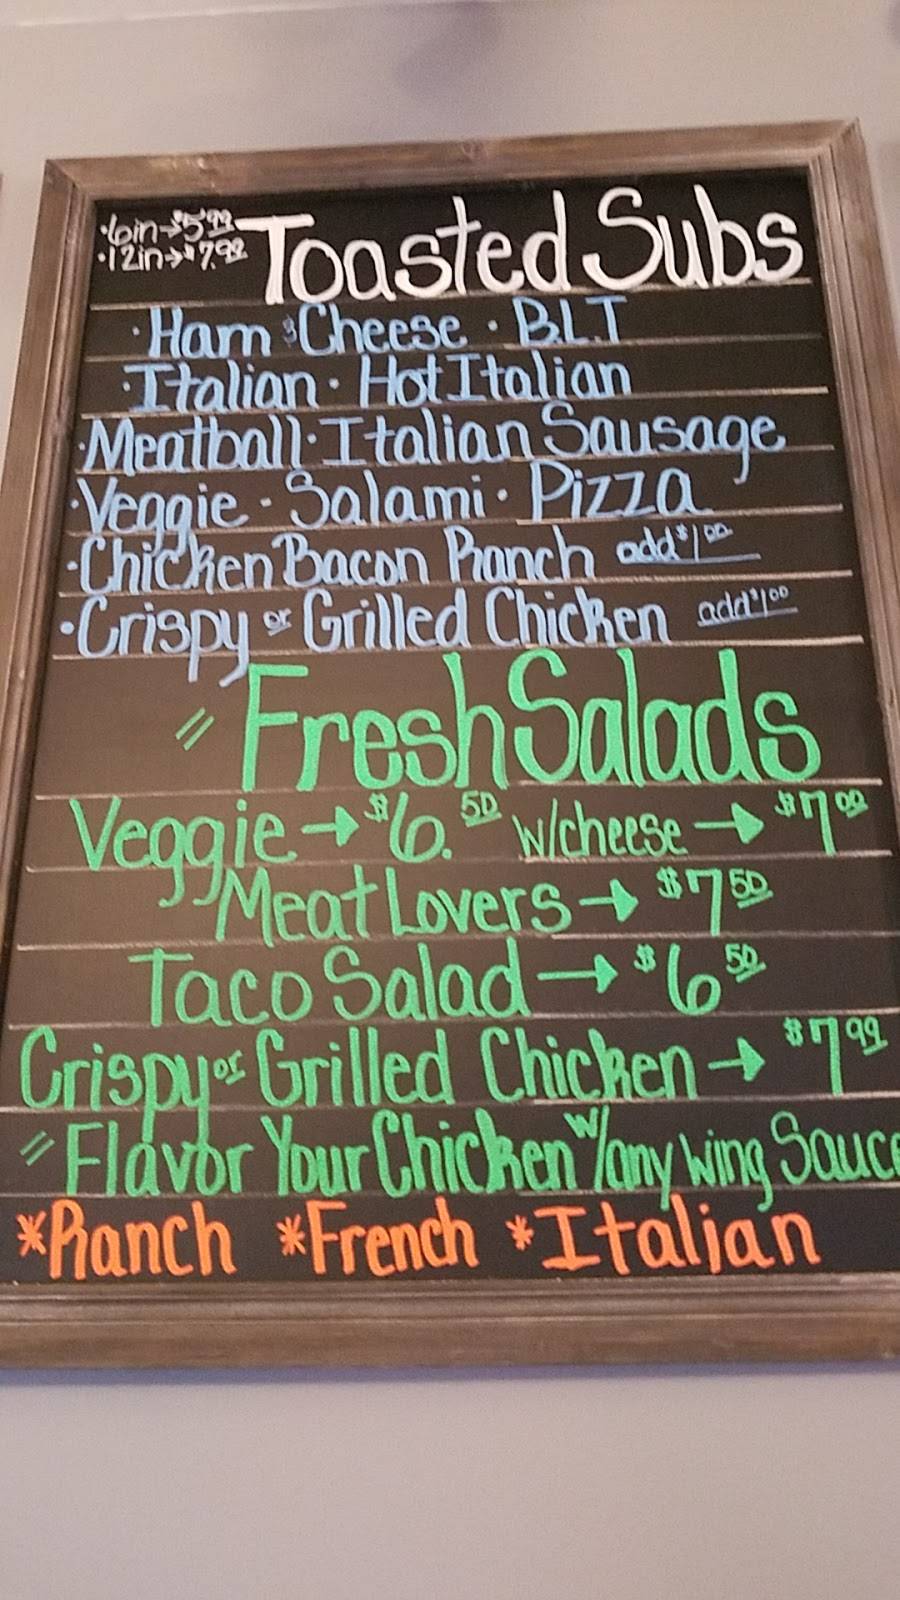 ·6in→$5.99 Toasted Subs
·12in→$7.99
·Ham & Cheese · B.L.T
·Italian · Hot Italian
·Meatball · Italian Sausage
·Veggie · Salami · Pizza
·Chicken Bacon Ranch add $1.00
·Crispy or Grilled Chicken add $1.00
" Fresh Salads
Veggie → $6.50 w/cheese → $7.00
Meat Lovers → $7.50
Taco Salad → $6.50
Crispy or Grilled Chicken → $7.99
" Flavor Your Chicken w/any wing Sauce
*Ranch *French *Italian